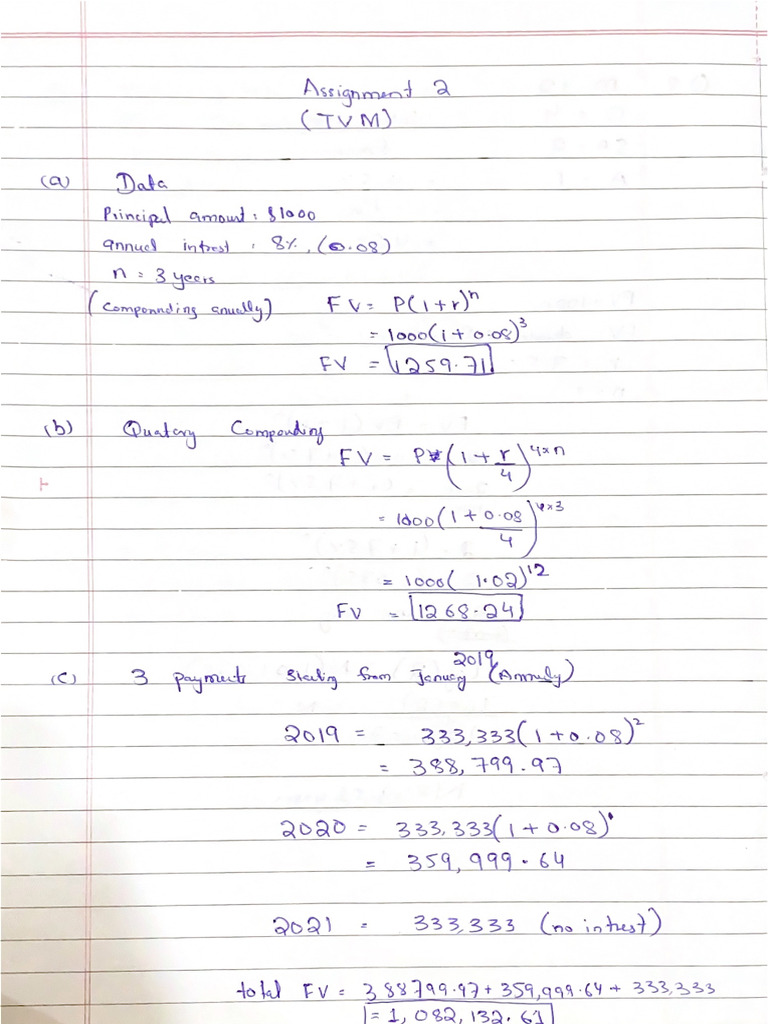 Assignment 2
(TVM)
(a) Data
Principal amount: $1000
annual intrest : 8%, (0.08)
n = 3 years
(compounding anually) FV = P(1+r)^n
= 1000(1+0.08)^3
FV = 1259.71
(b) Quatery Compounding
FV = P(1+r/4)^4×n
= 1000(1+0.08/4)^4×3
= 1000(1.02)^12
FV = 1268.24
(c) 3 payments starting from January 2019 (Annuly)
2019 = 333,333(1+0.08)^2
= 388,799.97
2020 = 333,333(1+0.08)
= 359,999.64
2021 = 333,333 (no intrest)
total FV = 388799.97+359,999.64+333,333
= 1,082,132.61